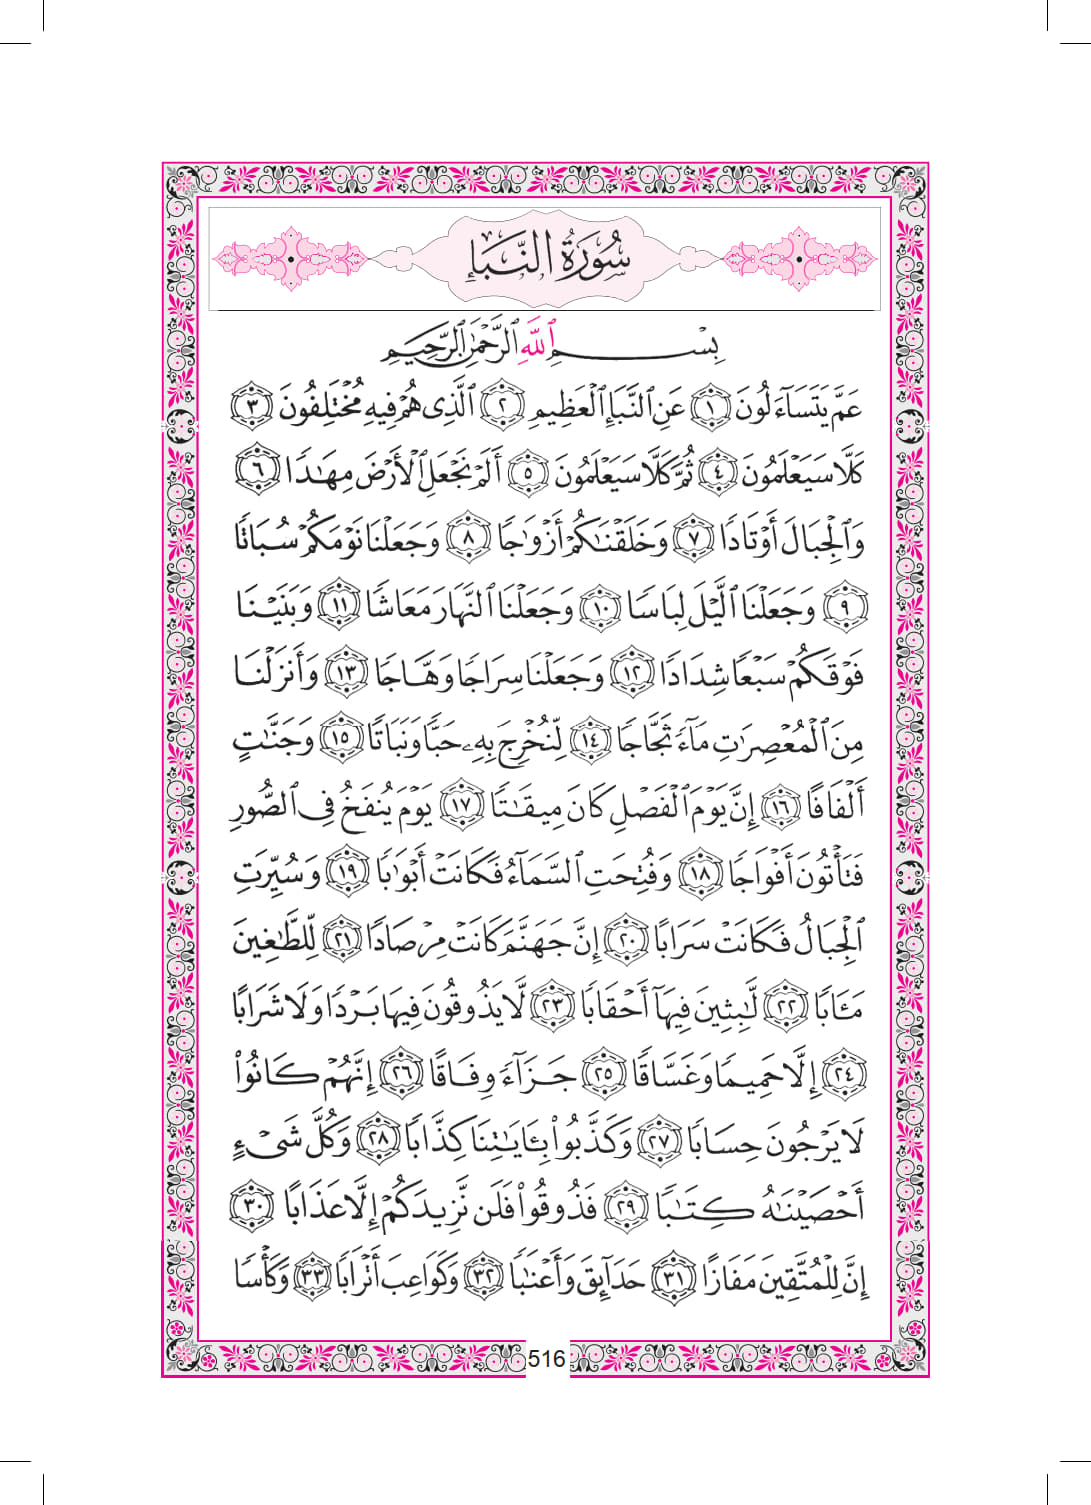 سُورَةُ النَّبَإِ
بِسْمِ ٱللَّهِ ٱلرَّحْمَٰنِ ٱلرَّحِيمِ
عَمَّ يَتَسَآءَلُونَ ١ عَنِ ٱلنَّبَإِ ٱلْعَظِيمِ ٢ ٱلَّذِى هُمْ فِيهِ مُخْتَلِفُونَ ٣
كَلَّا سَيَعْلَمُونَ ٤ ثُمَّ كَلَّا سَيَعْلَمُونَ ٥ أَلَمْ نَجْعَلِ ٱلْأَرْضَ مِهَٰدًا ٦
وَٱلْجِبَالَ أَوْتَادًا ٧ وَخَلَقْنَٰكُمْ أَزْوَٰجًا ٨ وَجَعَلْنَا نَوْمَكُمْ سُبَاتًا
٩ وَجَعَلْنَا ٱلَّيْلَ لِبَاسًا ١٠ وَجَعَلْنَا ٱلنَّهَارَ مَعَاشًا ١١ وَبَنَيْنَا
فَوْقَكُمْ سَبْعًا شِدَادًا ١٢ وَجَعَلْنَا سِرَاجًا وَهَّاجًا ١٣ وَأَنزَلْنَا
مِنَ ٱلْمُعْصِرَٰتِ مَآءً ثَجَّاجًا ١٤ لِّنُخْرِجَ بِهِۦ حَبًّا وَنَبَاتًا ١٥ وَجَنَّٰتٍ
أَلْفَافًا ١٦ إِنَّ يَوْمَ ٱلْفَصْلِ كَانَ مِيقَٰتًا ١٧ يَوْمَ يُنفَخُ فِى ٱلصُّورِ
فَتَأْتُونَ أَفْوَاجًا ١٨ وَفُتِحَتِ ٱلسَّمَآءُ فَكَانَتْ أَبْوَٰبًا ١٩ وَسُيِّرَتِ
ٱلْجِبَالُ فَكَانَتْ سَرَابًا ٢٠ إِنَّ جَهَنَّمَ كَانَتْ مِرْصَادًا ٢١ لِّلطَّٰغِينَ
مَـَٔابًا ٢٢ لَّٰبِثِينَ فِيهَآ أَحْقَابًا ٢٣ لَّا يَذُوقُونَ فِيهَا بَرْدًا وَلَا شَرَابًا
٢٤ إِلَّا حَمِيمًا وَغَسَّاقًا ٢٥ جَزَآءً وِفَاقًا ٢٦ إِنَّهُمْ كَانُوا۟
لَا يَرْجُونَ حِسَابًا ٢٧ وَكَذَّبُوا۟ بِـَٔايَٰتِنَا كِذَّابًا ٢٨ وَكُلَّ شَىْءٍ
أَحْصَيْنَٰهُ كِتَٰبًا ٢٩ فَذُوقُوا۟ فَلَن نَّزِيدَكُمْ إِلَّا عَذَابًا ٣٠
إِنَّ لِلْمُتَّقِينَ مَفَازًا ٣١ حَدَآئِقَ وَأَعْنَٰبًا ٣٢ وَكَوَاعِبَ أَتْرَابًا ٣٣ وَكَأْسًا
516